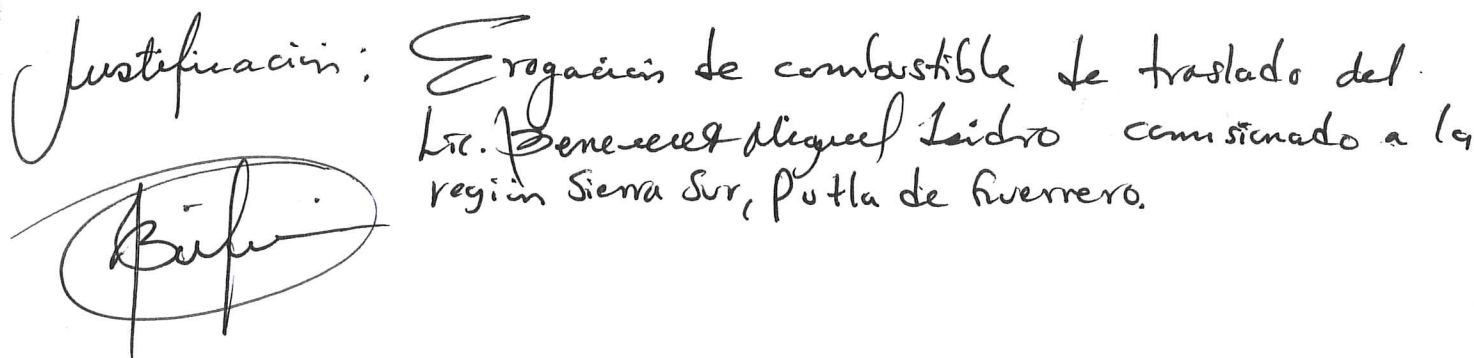 Justificación: Erogación de combustible de traslado del
Lic. Miguel Isidro comisionado a la
región Sierra Sur, Putla de Guerrero.